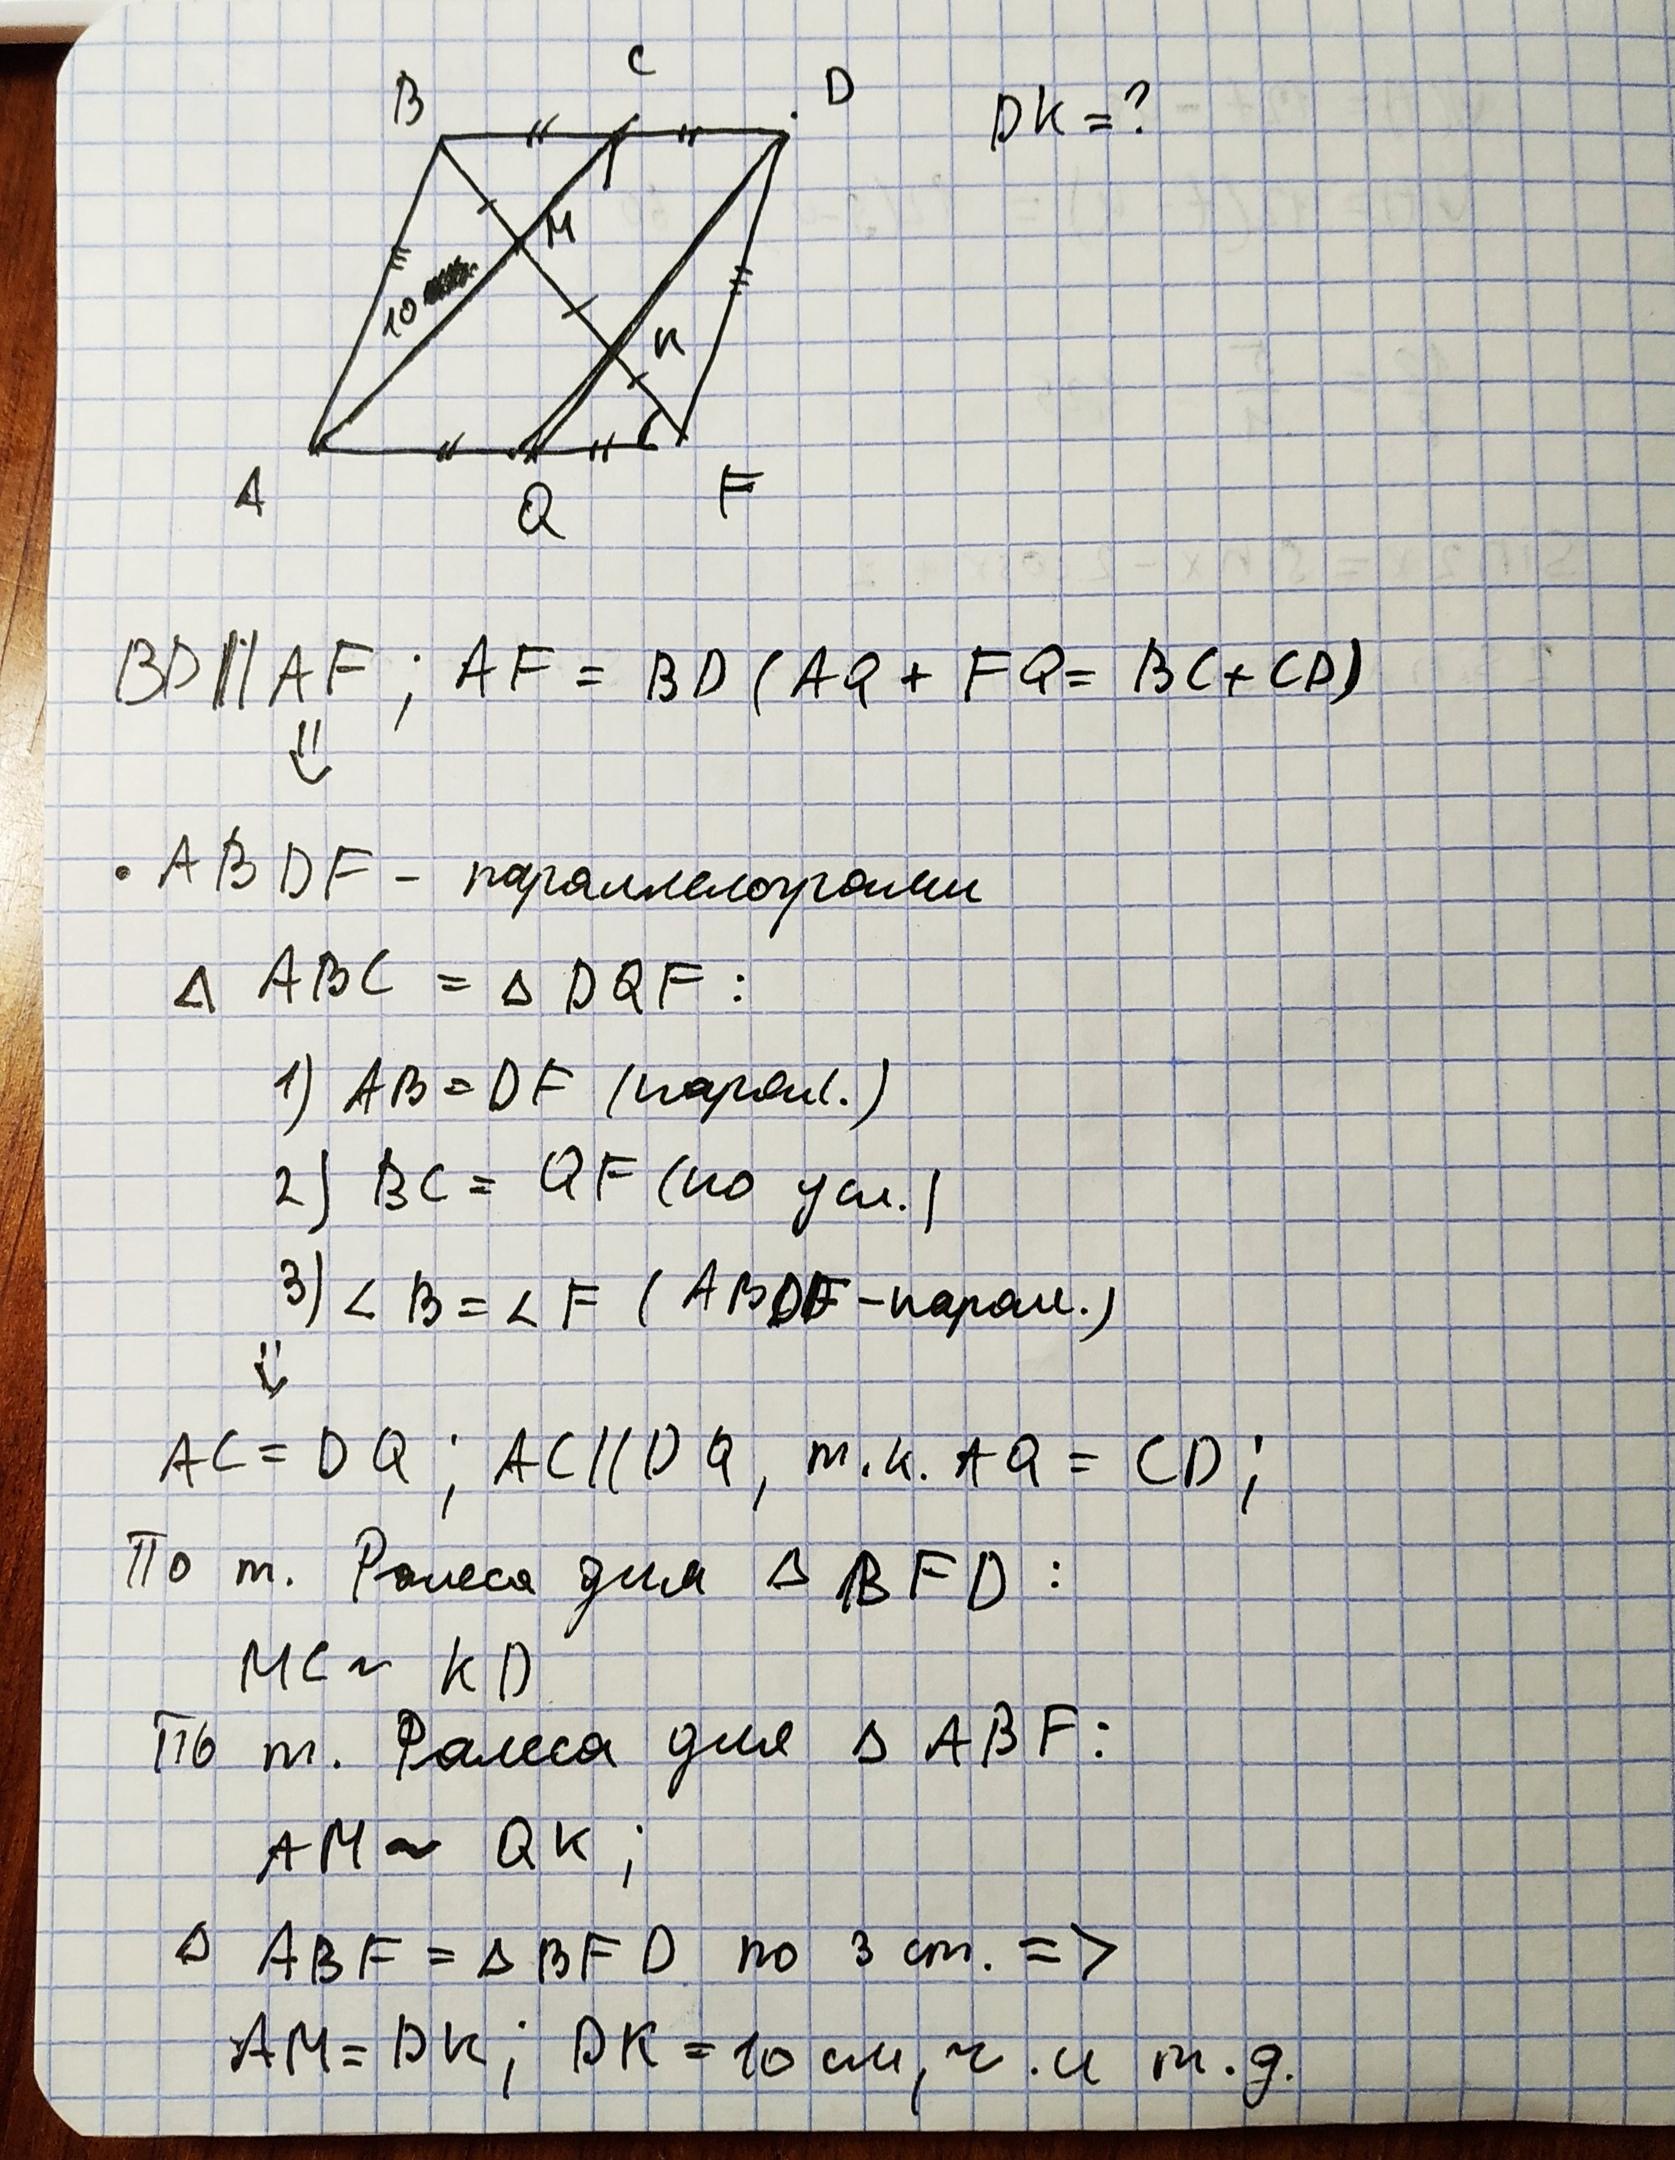 B C D
DK = ?
M
10
K
A Q F
BD || AF ; AF = BD (AQ + FQ = BC + CD)
⇓
• ABDF - параллелограмм
Δ ABC = Δ DQF :
1) AB = DF (парал.)
2) BC = QF (по усл.)
3) ∠ B = ∠ F (ABDF - парал.)
⇓
AC = DQ ; AC || DQ, т.к. AQ = CD ;
По т. Фалеса для Δ BFD :
MC ~ KD
По т. Фалеса для Δ ABF :
AM ~ QK ;
Δ ABF = Δ BFD по 3 ст. =>
AM = DK ; DK = 10 см, ч. и т.д.